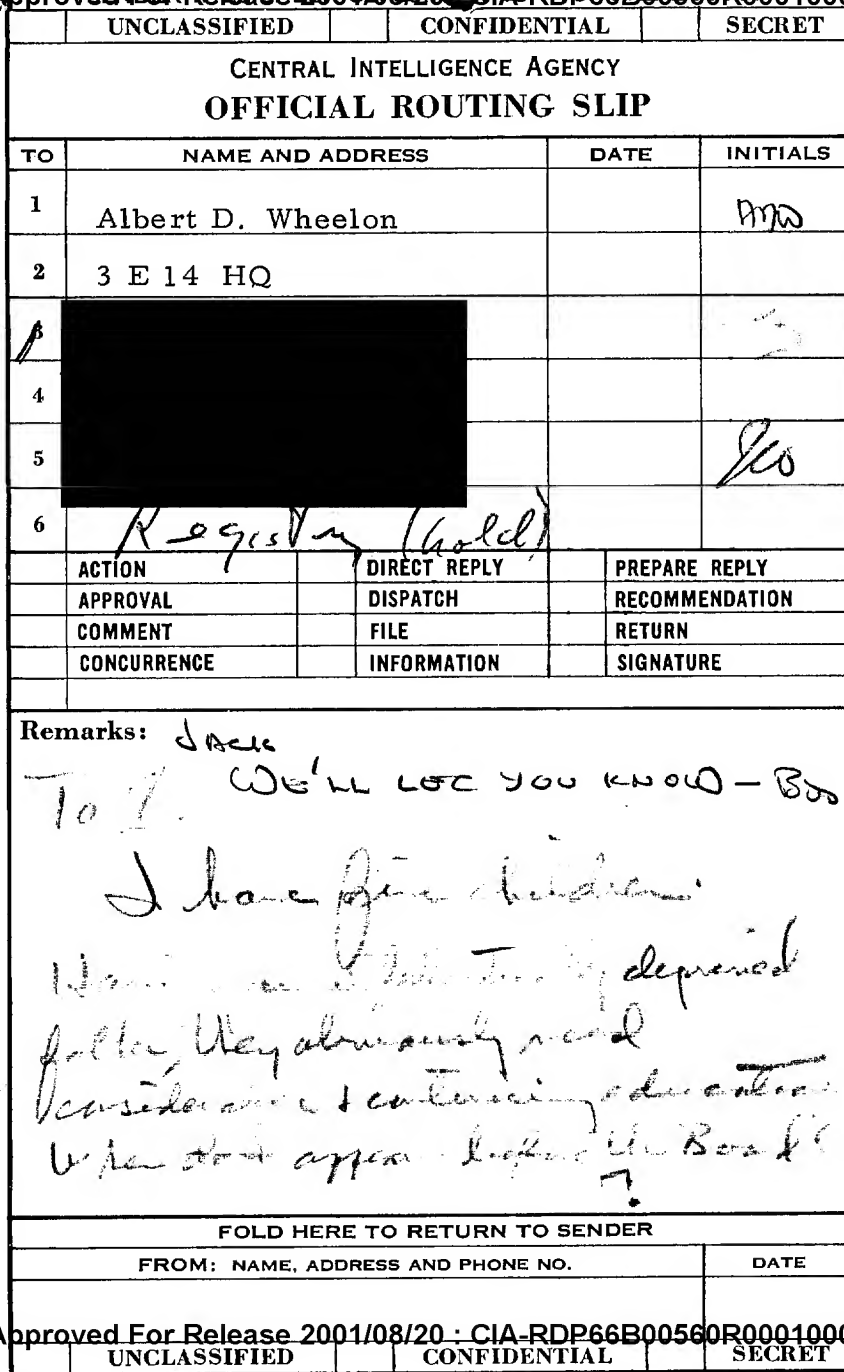 Approved For Release 2001/08/20 : CIA-RDP66B00560R0001000
UNCLASSIFIED CONFIDENTIAL SECRET
CENTRAL INTELLIGENCE AGENCY
OFFICIAL ROUTING SLIP
TO NAME AND ADDRESS DATE INITIALS
1 Albert D. Wheelon
2 3 E 14 HQ
3
4
5
6 Registry (hold)
ACTION DIRECT REPLY PREPARE REPLY
APPROVAL DISPATCH RECOMMENDATION
COMMENT FILE RETURN
CONCURRENCE INFORMATION SIGNATURE
Remarks: JACK
WE'LL LET YOU KNOW - BUD
To 1.
I have five children.
deprived
they obviously need
consideration & continuing education
When do I appear before the Board
?
FOLD HERE TO RETURN TO SENDER
FROM: NAME, ADDRESS AND PHONE NO. DATE
Approved For Release 2001/08/20 : CIA-RDP66B00560R0001000
UNCLASSIFIED CONFIDENTIAL SECRET